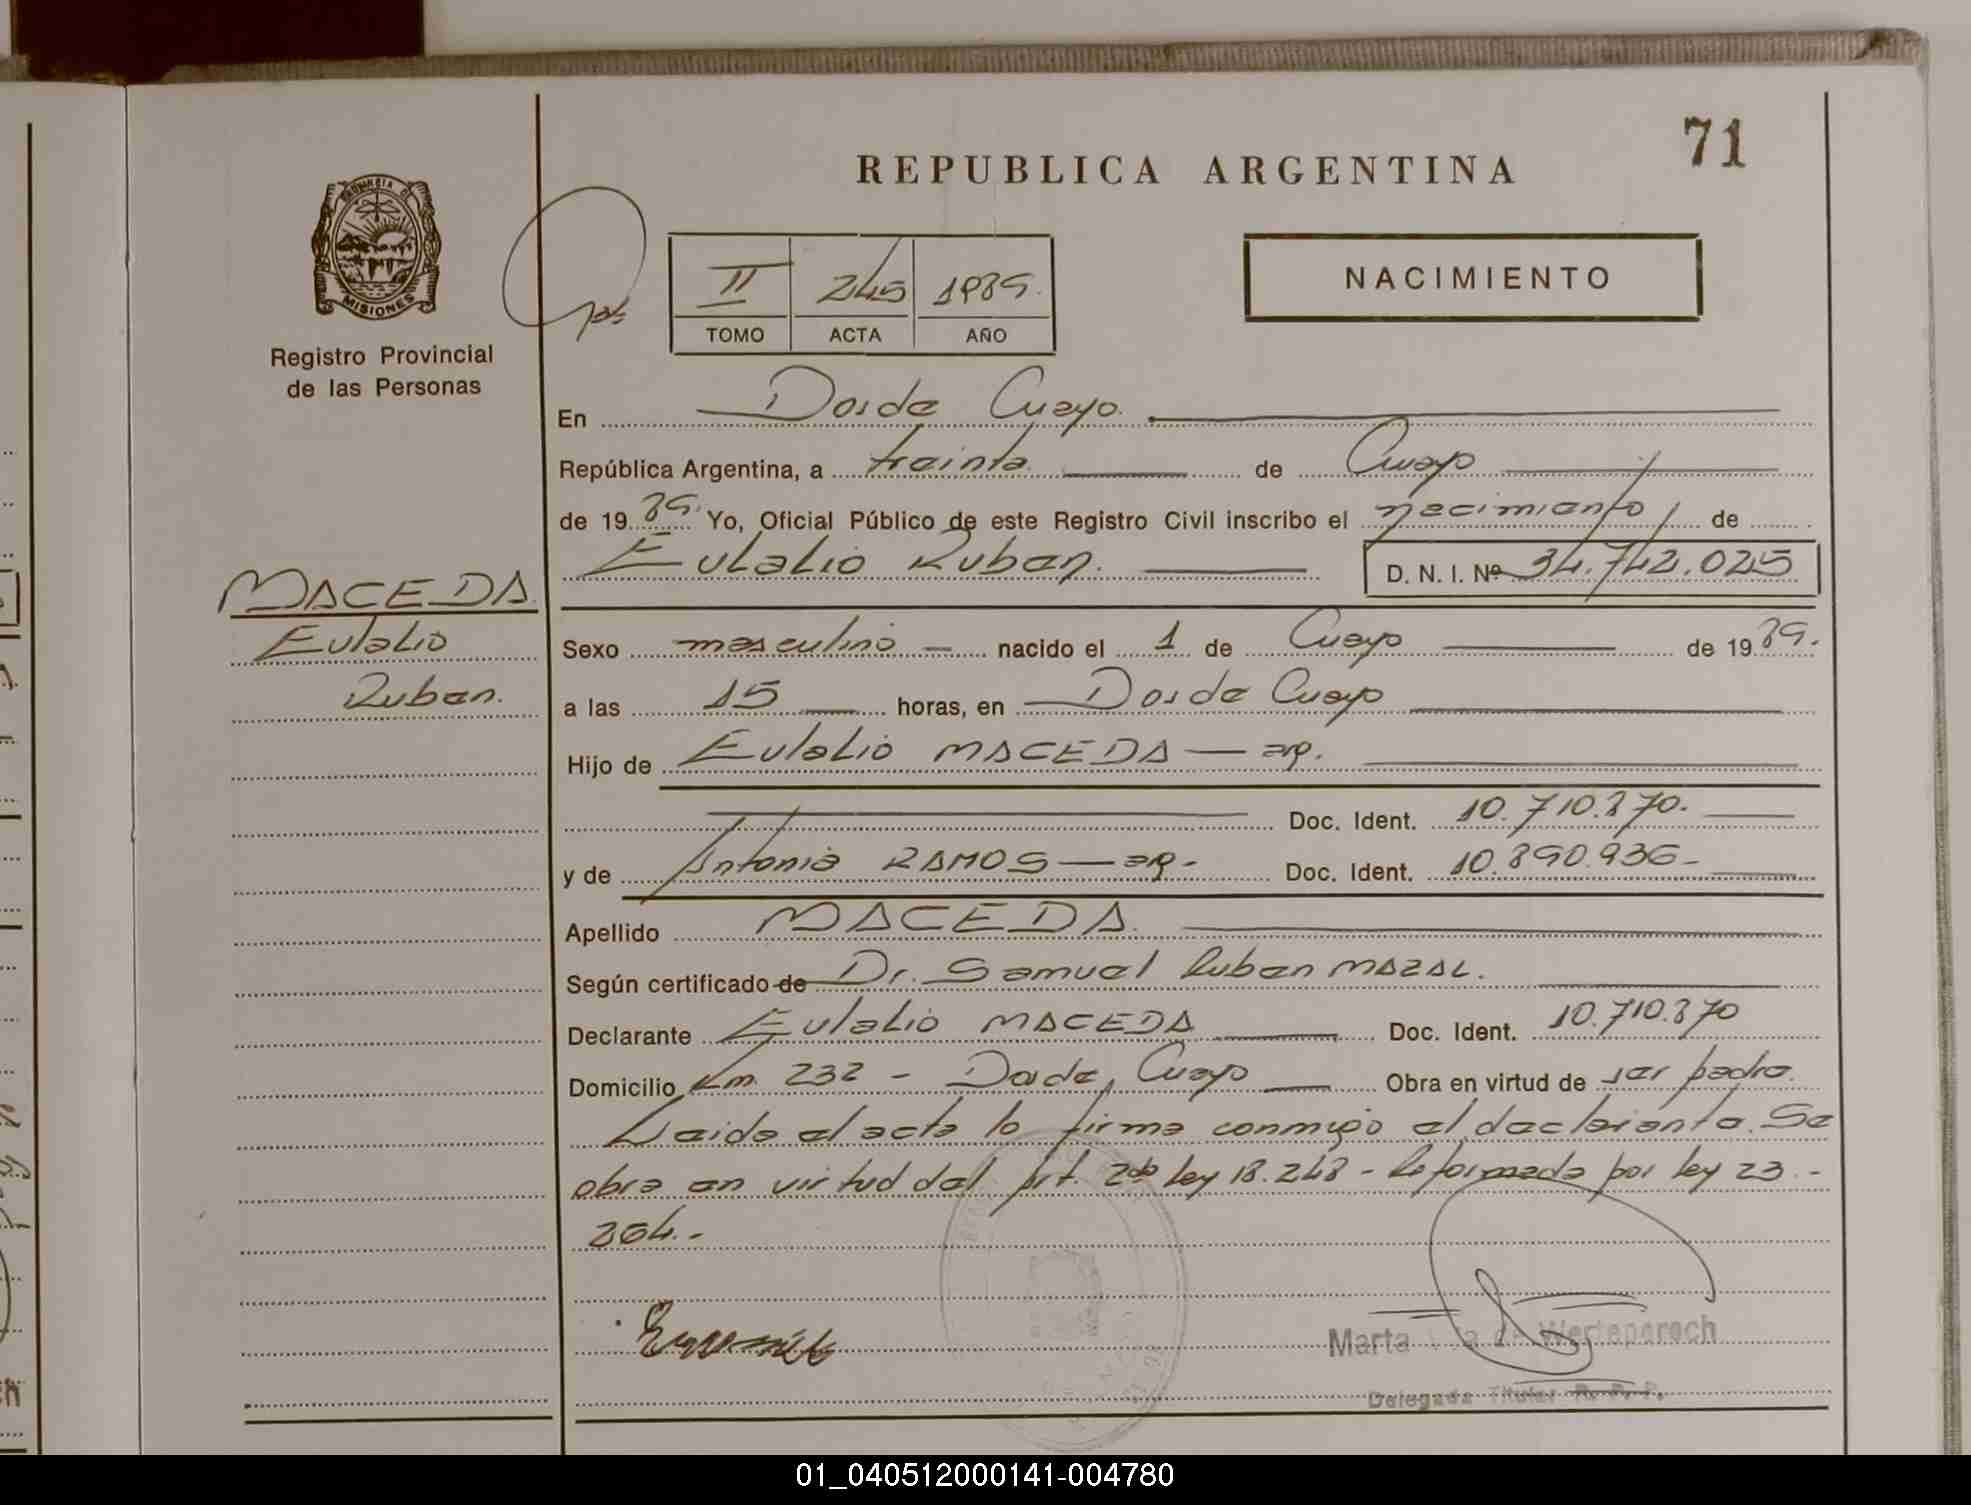 71
REPUBLICA ARGENTINA
NACIMIENTO
II 245 1989.
TOMO ACTA AÑO
PROVINCIA DE
MISIONES
Registro Provincial
de las Personas
En Dos de Mayo.
República Argentina, a treinta de Mayo
de 19 89. Yo, Oficial Público de este Registro Civil inscribo el nacimiento de
Eulalio Ruben. D. N. I. Nº 34.742.025
MACEDA
Eulalio
Ruben.
Sexo masculino nacido el 1 de Mayo de 19 89.
a las 15 horas, en Dos de Mayo
Hijo de Eulalio MACEDA — arg.
Doc. Ident. 10.710.870.
y de Antonia RAMOS — arg. Doc. Ident. 10.890.936
Apellido MACEDA
Según certificado de Dr. Samuel Ruben MAZAL.
Declarante Eulalio MACEDA Doc. Ident. 10.710.870
Domicilio Km. 232 - Dos de Mayo Obra en virtud de ser padre.
Leida el acta lo firma conmigo el declarante. Se
obra en virtud del Art. 2do ley 18.248 - Reformada por ley 23.-
264.-
Marta de
Delegada Titular R. P. P.
01_040512000141-004780